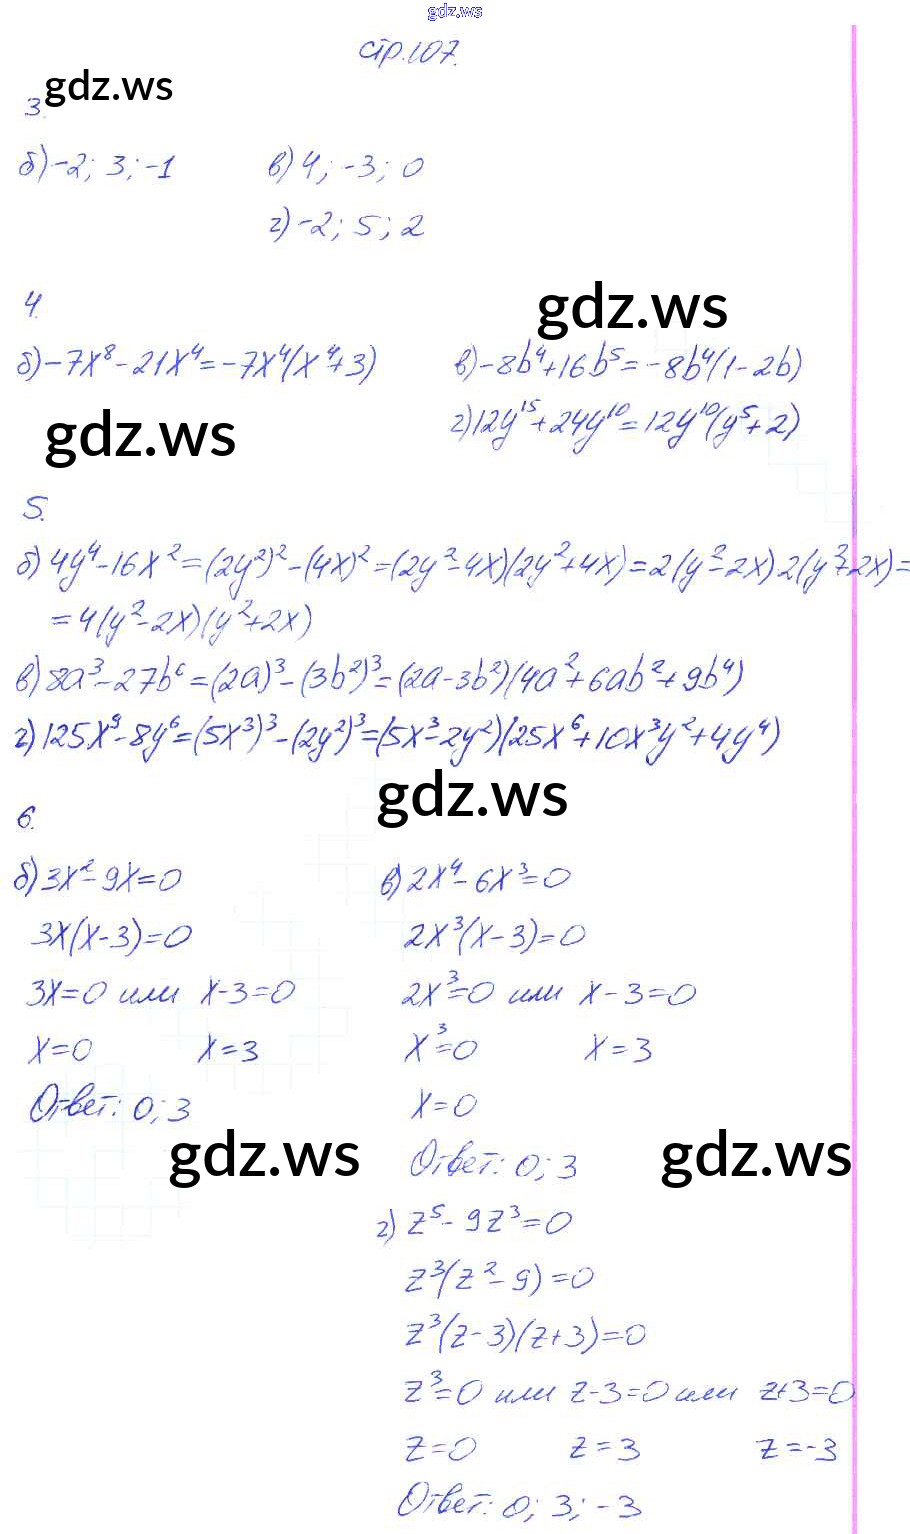 gdz.ws
стр.107.
gdz.ws
3.
б) -2; 3; -1
в) 4; -3; 0
г) -2; 5; 2
4.
gdz.ws
б) -7x⁸ - 21x⁴ = -7x⁴(x⁴+3)
в) -8b⁴+16b⁵ = -8b⁴(1-2b)
г) 12y¹⁵ + 24y¹⁰ = 12y¹⁰(y⁵+2)
gdz.ws
5.
б) 4y⁴ - 16x² = (2y²)² - (4x)² = (2y²-4x)(2y²+4x) = 2(y²-2x)2(y²+2x) =
= 4(y²-2x)(y²+2x)
в) 8a³ - 27b⁶ = (2a)³ - (3b²)³ = (2a-3b²)(4a²+6ab²+9b⁴)
г) 125x⁹ - 8y⁶ = (5x³)³ - (2y²)³ = (5x³-2y²)(25x⁶+10x³y²+4y⁴)
gdz.ws
6.
б) 3x² - 9x = 0
3x(x-3) = 0
3x=0 или x-3=0
x=0 x=3
Ответ: 0; 3
в) 2x⁴ - 6x³ = 0
2x³(x-3) = 0
2x³=0 или x-3=0
x³=0 x=3
x=0
Ответ: 0; 3
gdz.ws
gdz.ws
г) z⁵ - 9z³ = 0
z³(z²-9) = 0
z³(z-3)(z+3) = 0
z³=0 или z-3=0 или z+3=0
z=0 z=3 z=-3
Ответ: 0; 3; -3